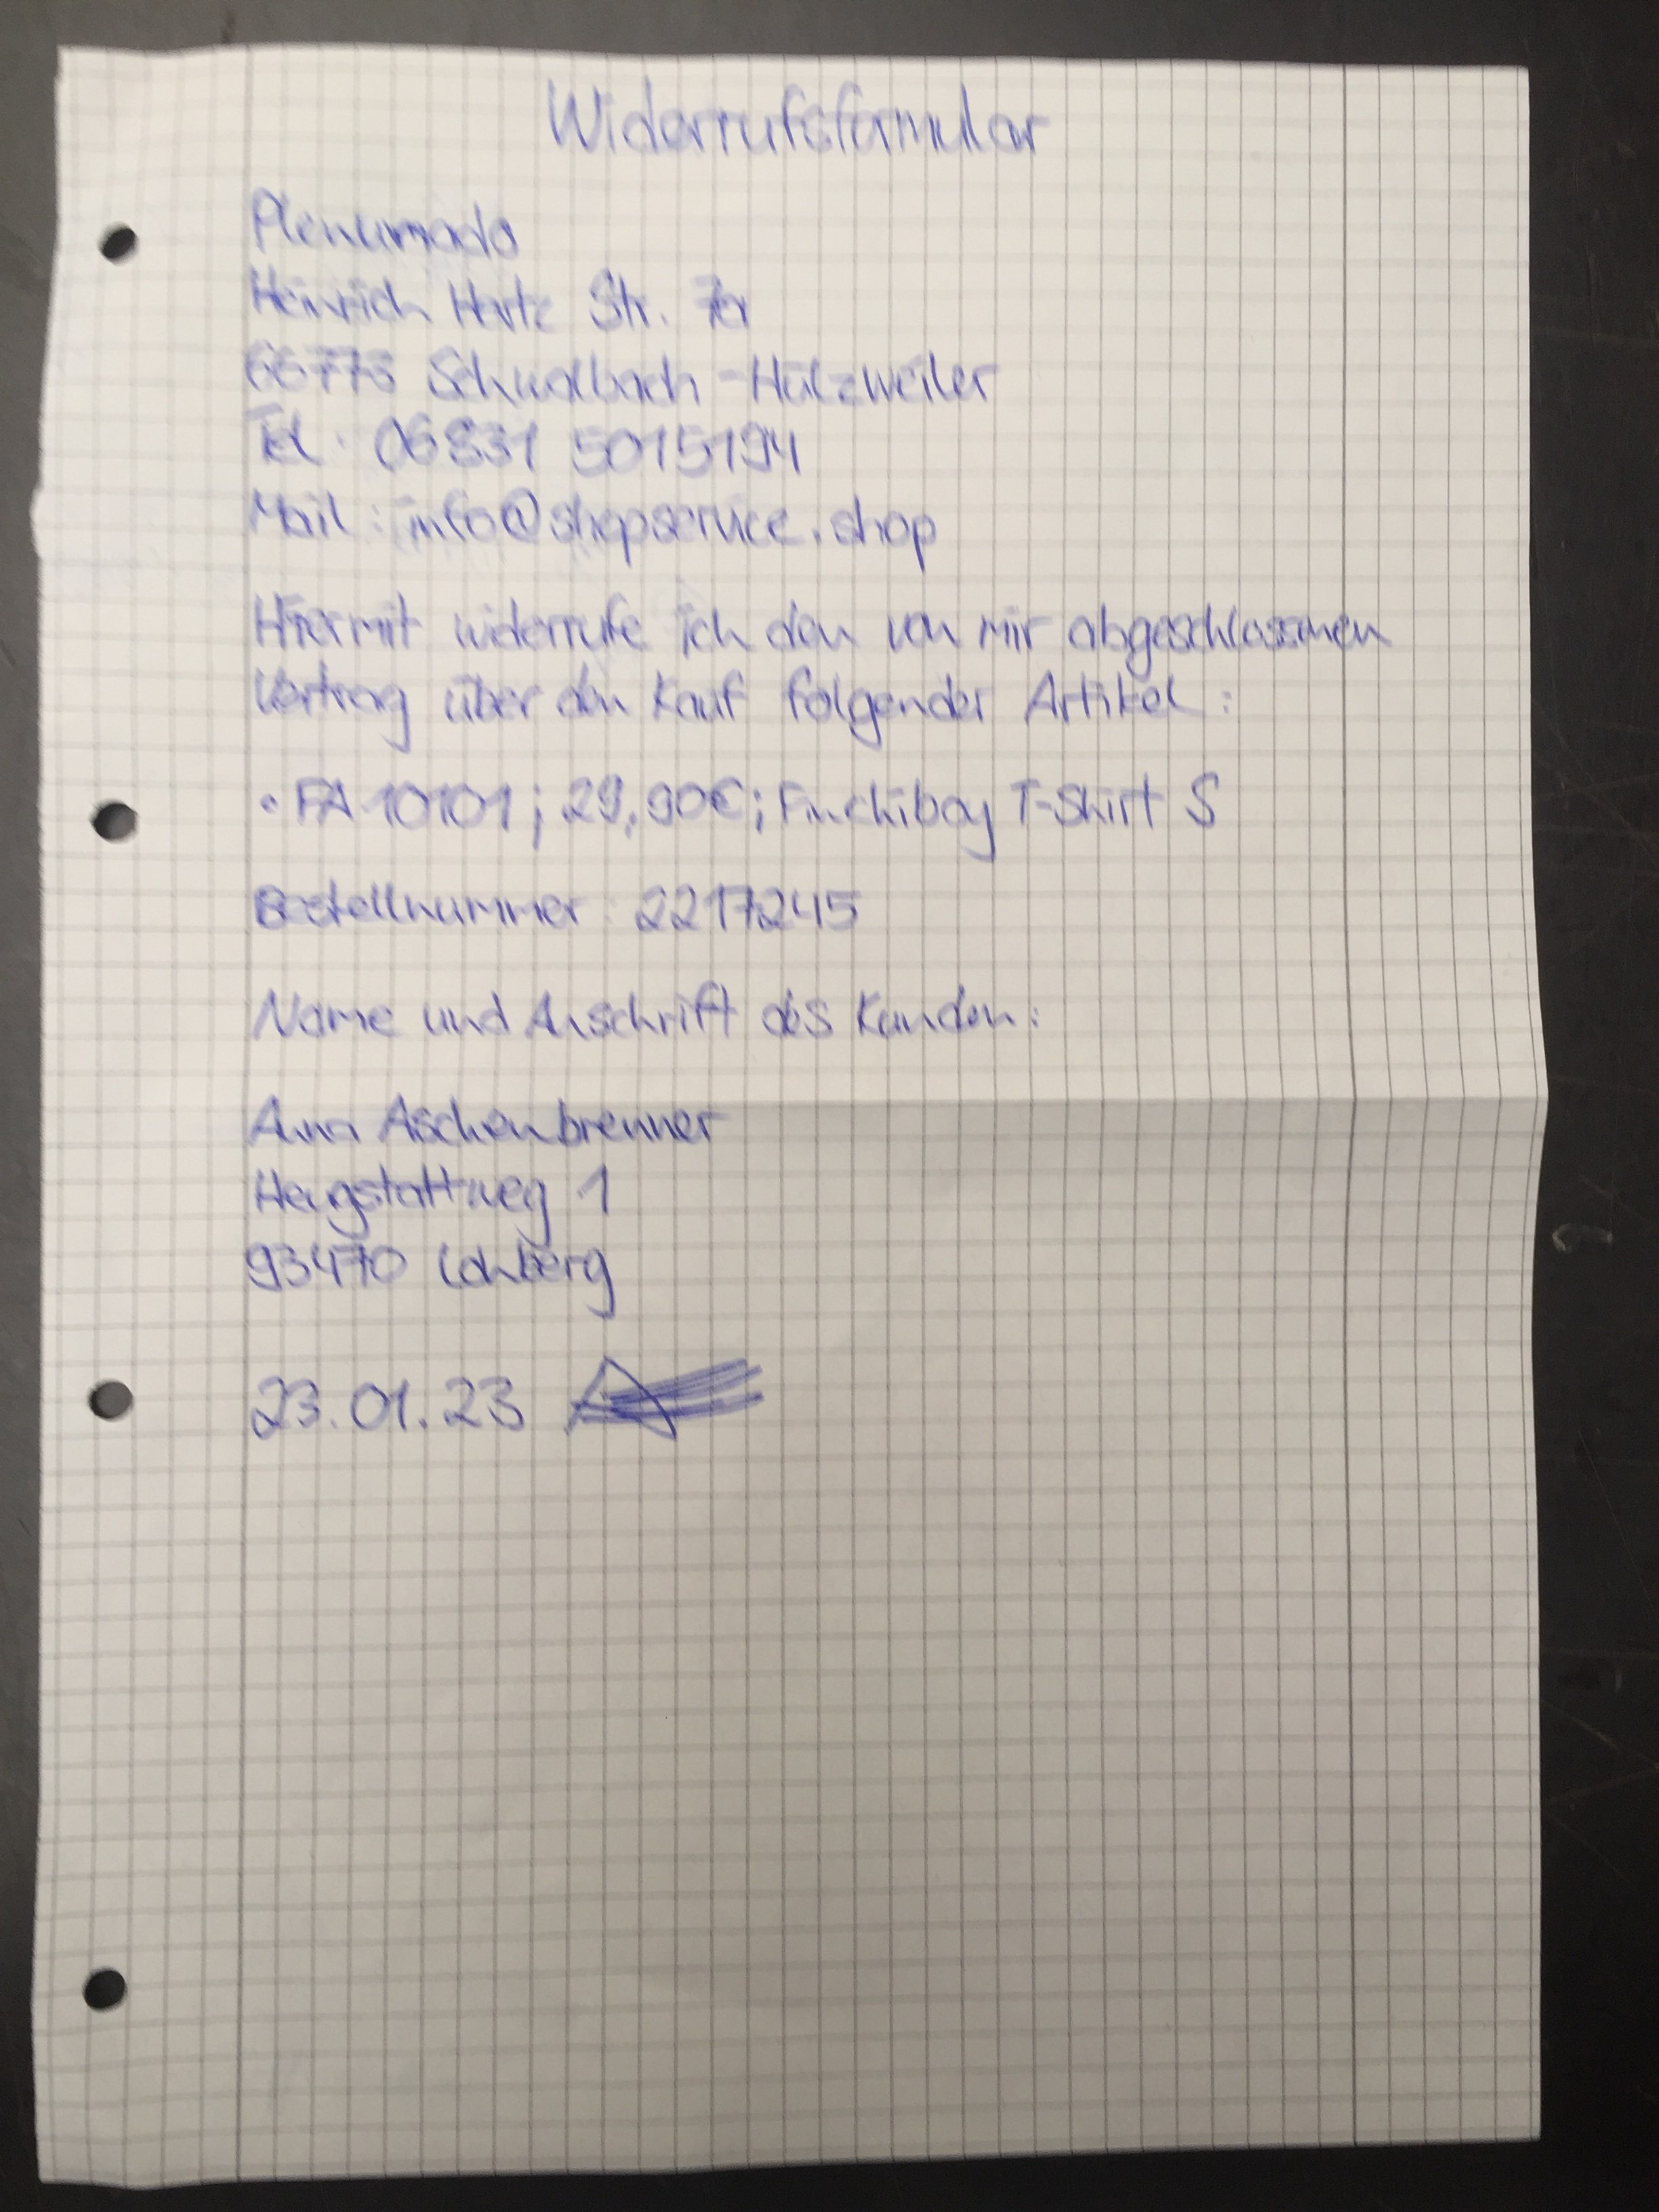 Widerrufsformular
Plenumado
Heinrich Hertz Str. 7a
66773 Schwalbach - Hülzweiler
Tel. 06831 5015194
Mail: info@shopservice.shop
Hiermit widerrufe ich den von mir abgeschlossenen
Vertrag über den Kauf folgender Artikel:
• FA 10101; 29,90€; T-Shirt S
Bestellnummer: 2217245
Name und Anschrift des Kunden:
Anna Aschenbrenner
Hengstattweg 1
93470 Lohberg
23.01.23